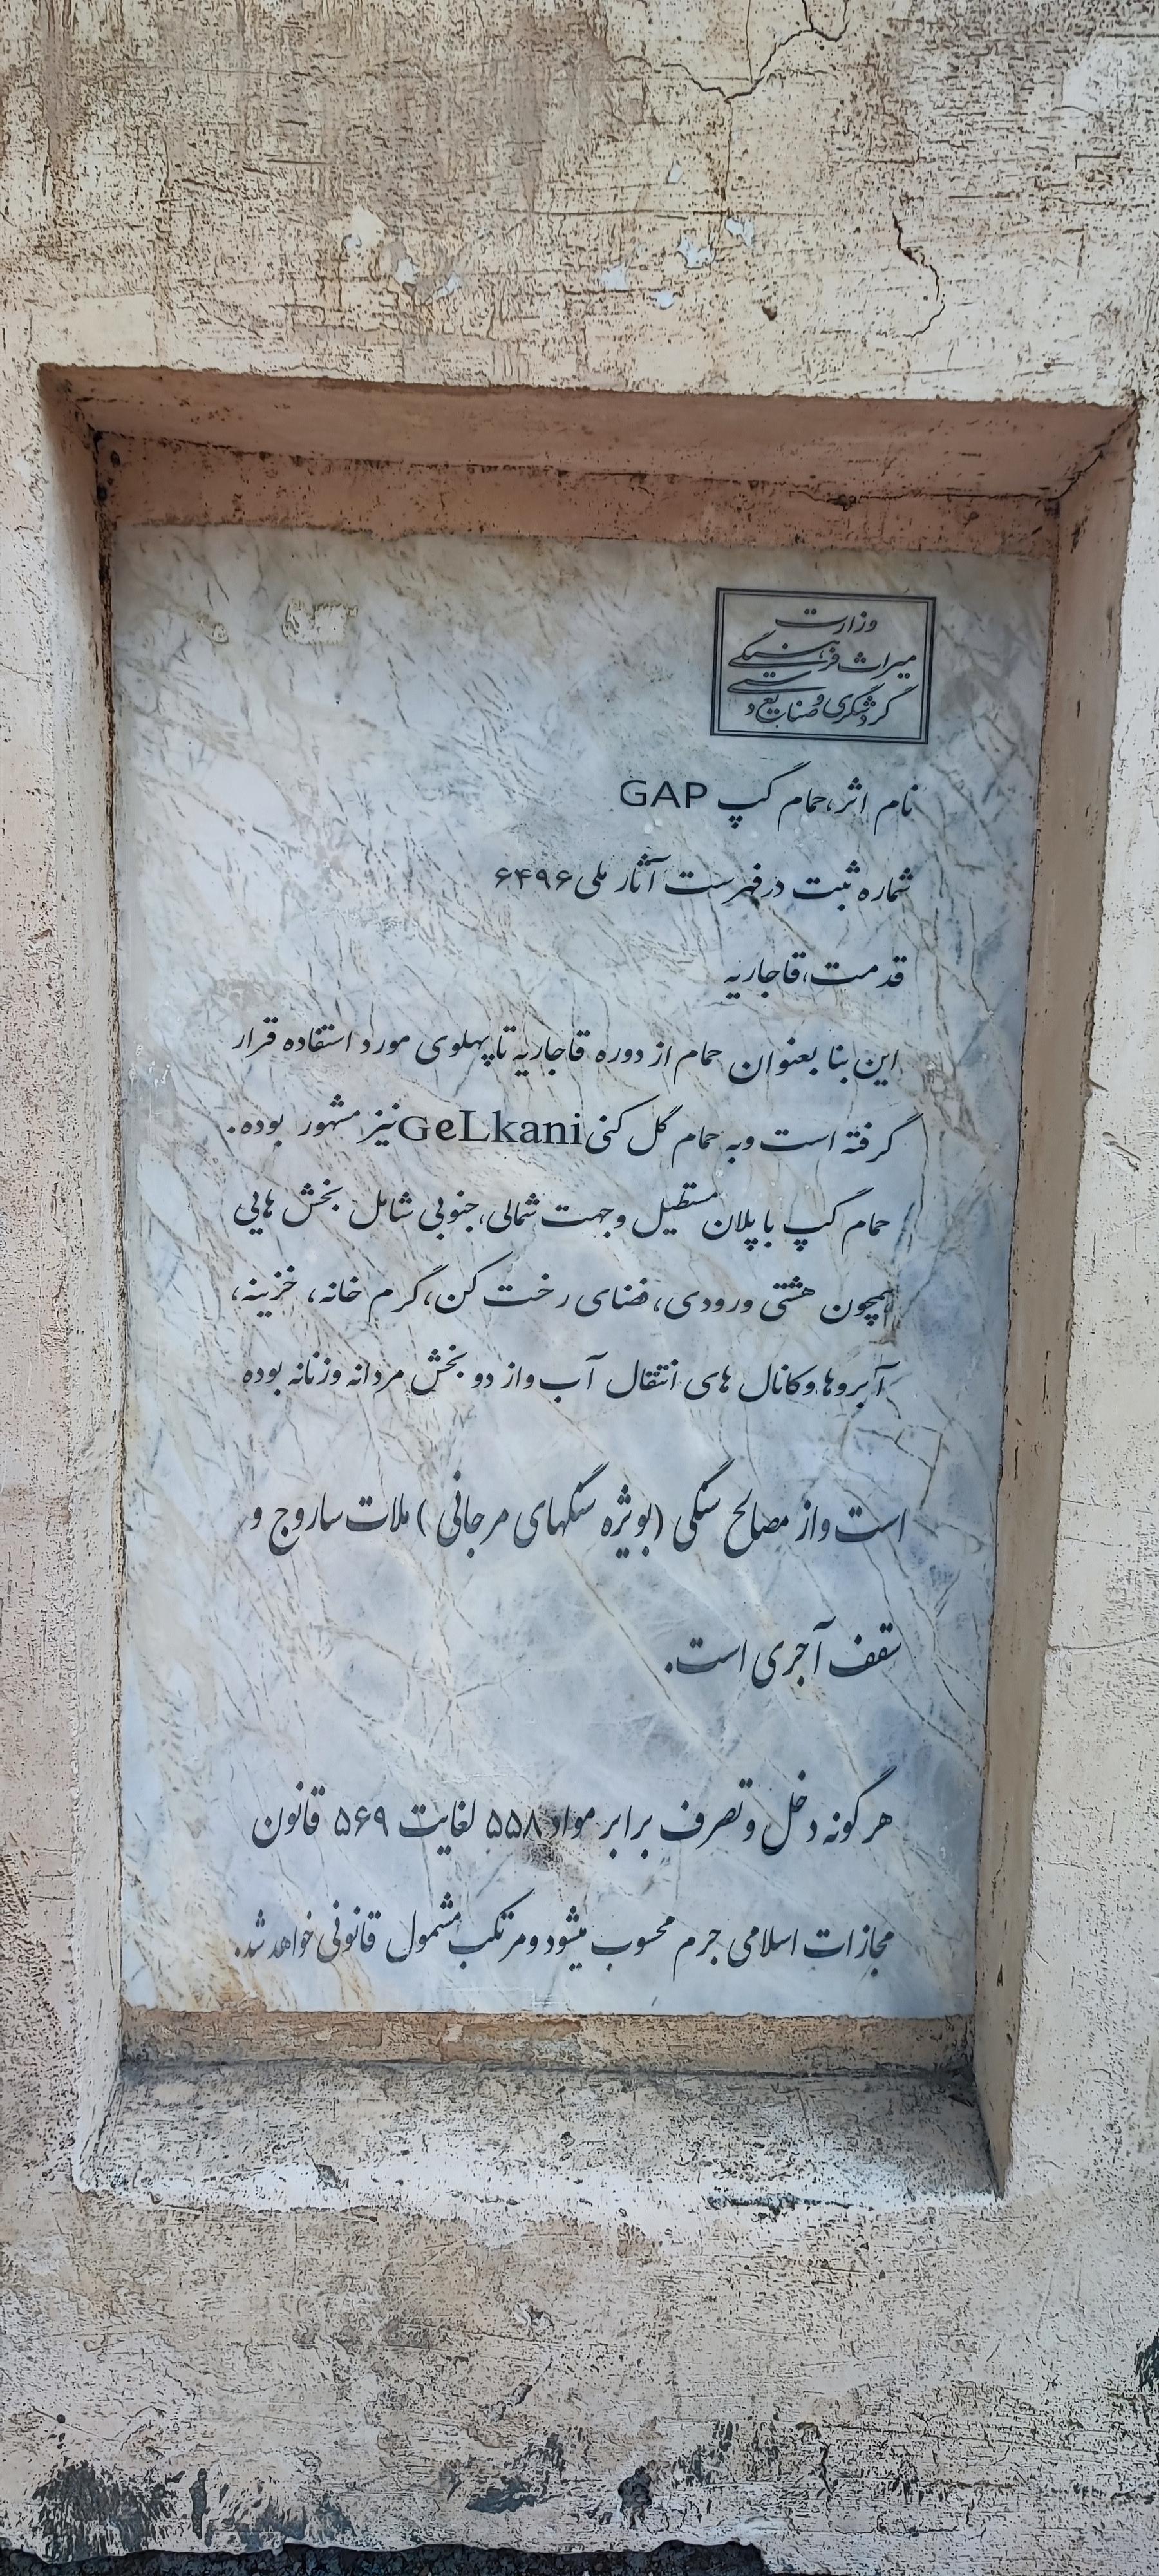 وزارت
میراث فرهنگی
گردشگری و صنایع دستی
نام اثر،حمام گپ GAP
شماره ثبت درفهرست آثار ملی ۶۴۹۶
قدمت،قاجاریه
این بنا بعنوان حمام از دوره قاجاریه تا پهلوی مورد استفاده قرار
گرفته است وبه حمام گل کنی GeLkani نیز مشهور بوده.
حمام گپ با پلان مستطیل وجهت شمالی،جنوبی شامل بخش هایی
همچون هشتی ورودی، فضای رخت کن،گرم خانه، خزینه،
آبروها وکانال های انتقال آب واز دو بخش مردانه وزنانه بوده
است واز مصالح سنگی (بویژه سنگهای مرجانی ) ملات ساروج و
سقف آجری است.
هرگونه دخل وتصرف برابر مواد ۵۵۸ لغایت ۵۶۹ قانون
مجازات اسلامی جرم محسوب میشود ومرتکب مشمول قانونی خواهد شد.